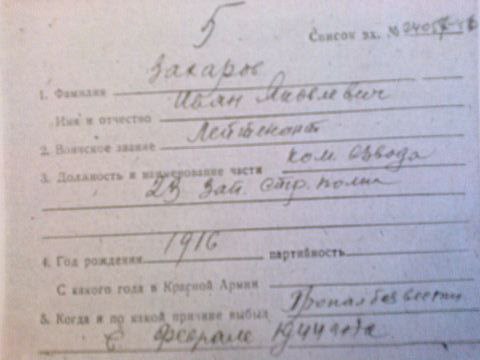 5
Список вх. №
Захаров
1. Фамилия
Иван Яковлевич
Имя и отчество
Лейтенант
2. Воинское звание
ком. взвода
3. Должность и наименование части
23 зап. стр. полк
1916
4. Год рождения партийность
С какого года в Красной Армии
Пропал без вести
5. Когда и по какой причине выбыл
С феврале 1944 года